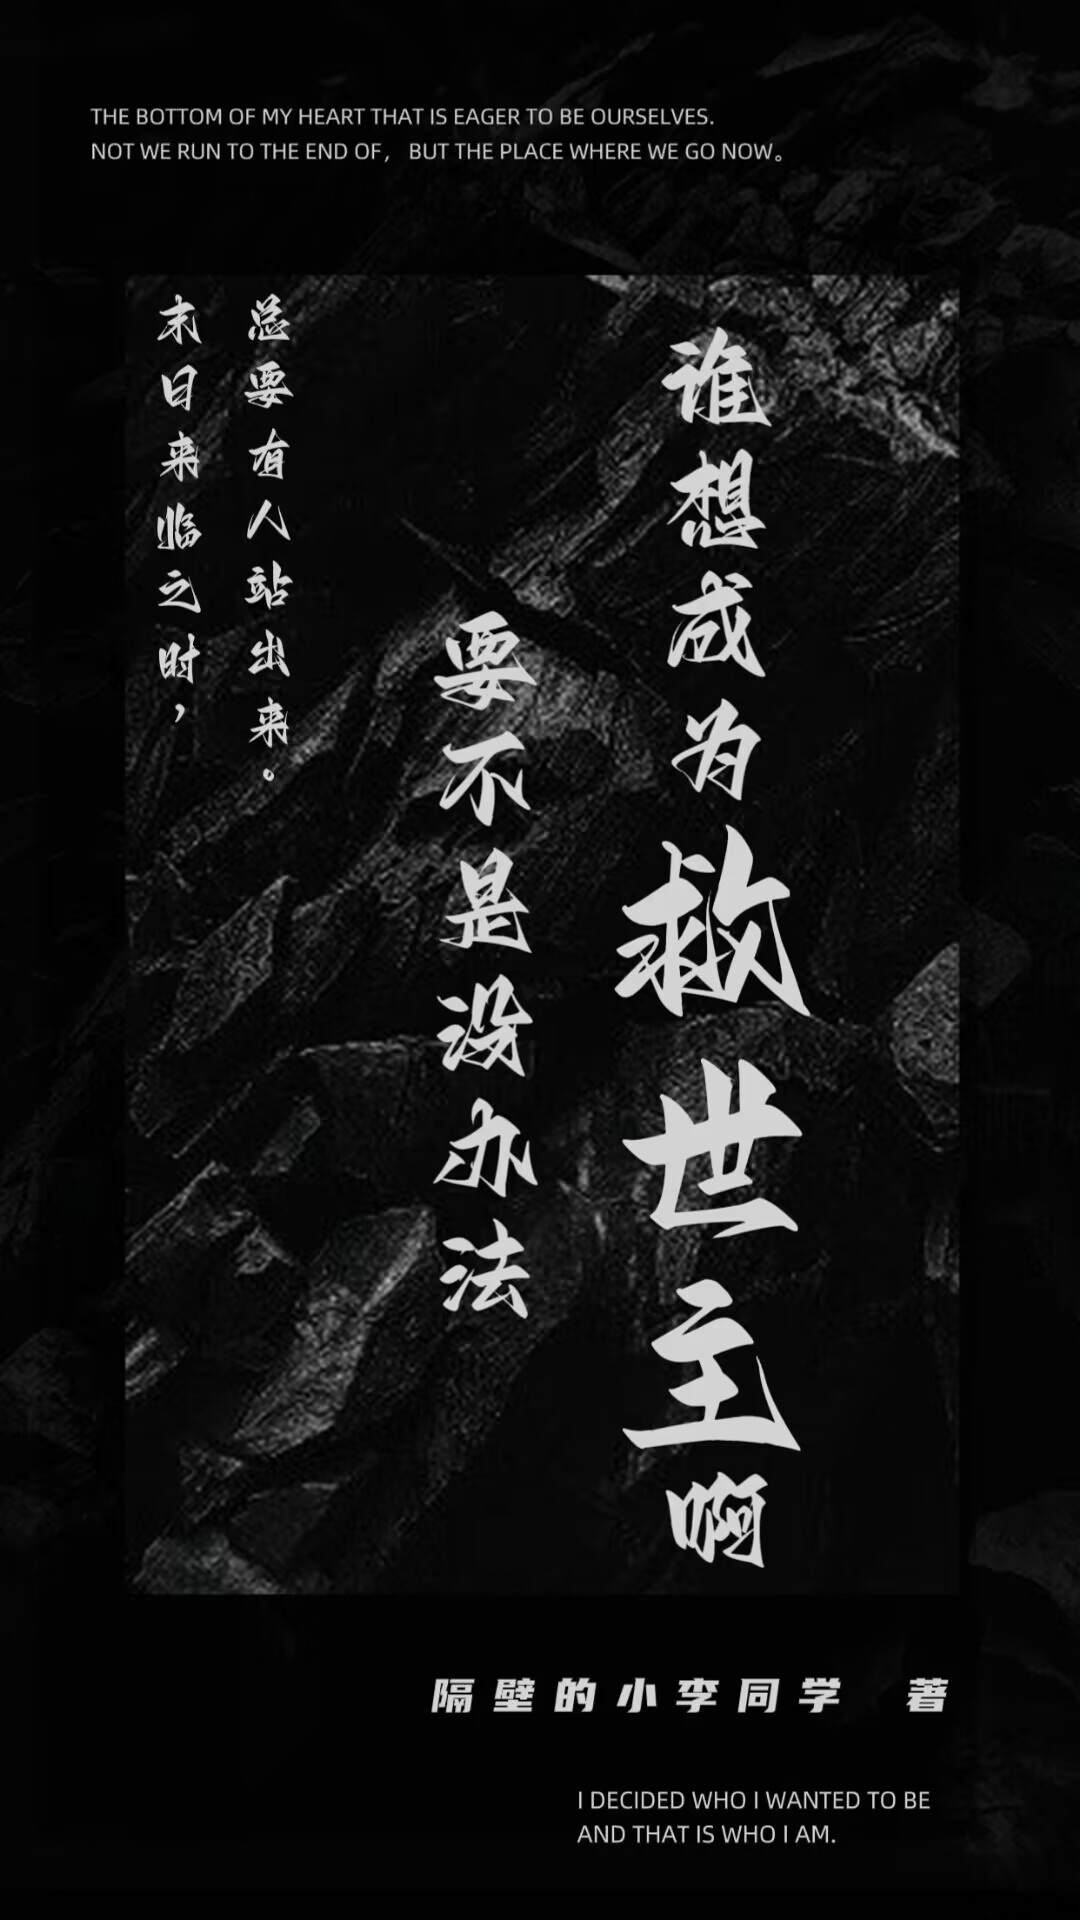 THE BOTTOM OF MY HEART THAT IS EAGER TO BE OURSELVES.
NOT WE RUN TO THE END OF， BUT THE PLACE WHERE WE GO NOW。
谁想成为救世主啊
要不是没办法
末日来临之时，
总要有人站出来。
隔壁的小李同学 著
I DECIDED WHO I WANTED TO BE
AND THAT IS WHO I AM.